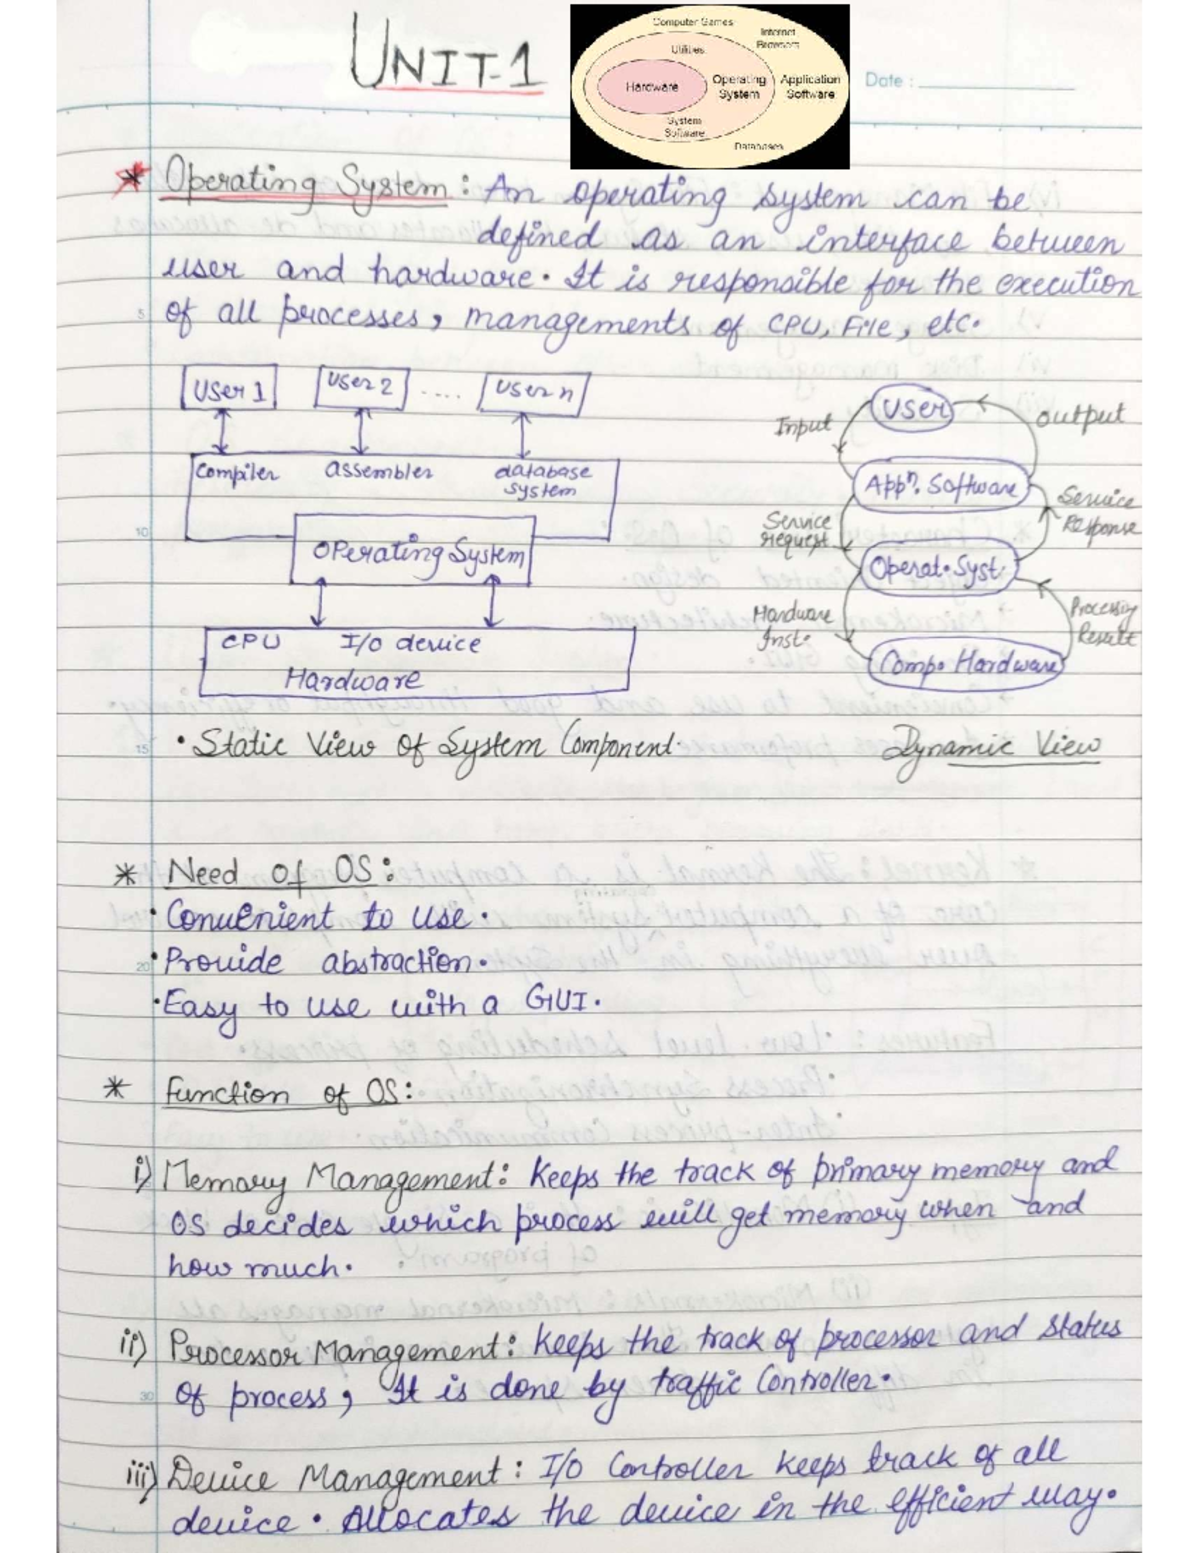 UNIT-1
Computer Games
Internet
Browsers
Utilities
Hardware
Operating
System
Application
Software
System
Software
Databases
Date :
* Operating System : An operating system can be
defined as an interface between
user and hardware. It is responsible for the execution
5 of all processes, managements of CPU, File, etc.
User 1 User 2 .... User n
Compiler assembler database
system
Operating System
CPU I/O device
Hardware
User
Input
Output
Appn. Software
Service
request
Service
Response
Operat. Syst.
Hardware
Inst.
Processing
Result
Comp. Hardware
10
15 • Static View of System Component. Dynamic View
* Need of OS :
• Convenient to use.
20 • Provide abstraction.
• Easy to use with a GUI.
* Function of OS :
i) Memory Management : Keeps the track of primary memory and
OS decides which process will get memory when and
how much.
ii) Processor Management : Keeps the track of processor and status
30 of process, It is done by traffic Controller.
iii) Device Management : I/O Controller keeps track of all
device. Allocates the device in the efficient way.